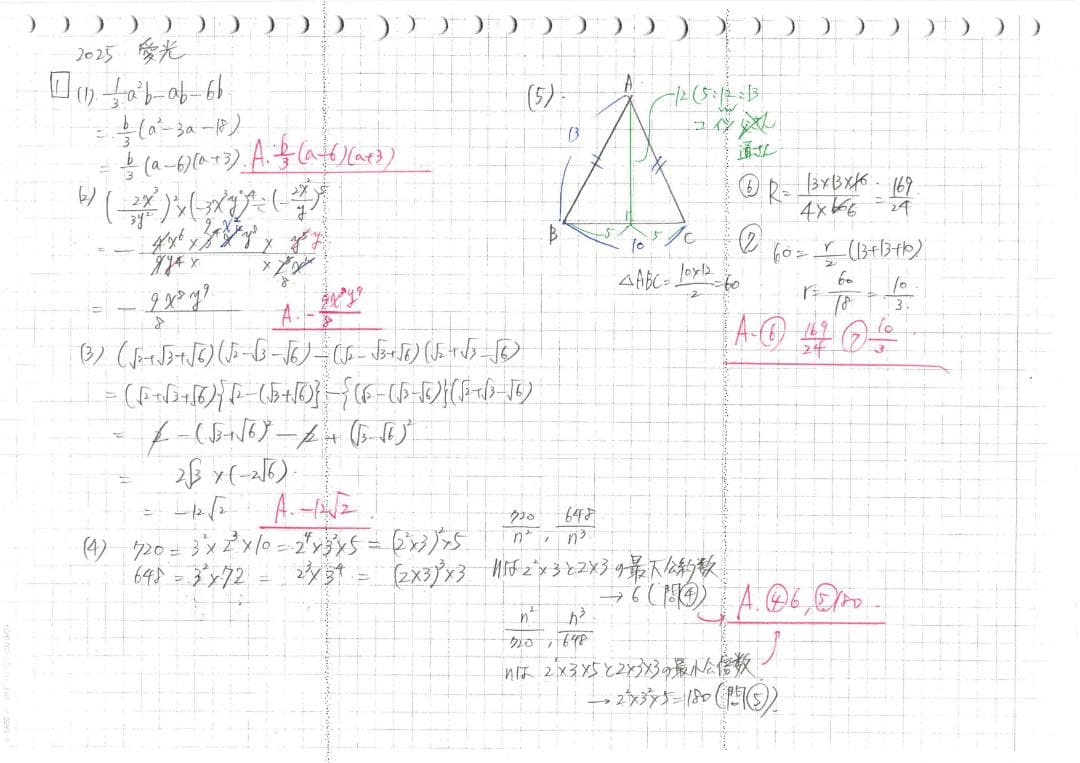 2025 愛光
1 (1). 1/3 a²b-ab-6b
= b/3 (a²-3a-18)
= b/3 (a-6)(a+3). A. b/3 (a-6)(a+3)
(2) (2x³/3y²)² × (-3x³y²)⁴ ÷ (-2x²/y)⁵
= - 4x⁶ × y⁸ × y⁵ y / 9y⁴ × × 8
= - 9x⁸y⁹/8 A. - 9x⁸y⁹/8
(3) (√2+√3+√6)(√2-√3-√6)-(√2-√3+√6)(√2+√3-√6)
= (√2+√3+√6){√2-(√3+√6)}-{√2-(√3-√6)}(√2+√3-√6)
= 2-(√3+√6)²-2+(√3-√6)²
= 2√3×(-2√6).
= -12√2 A. -12√2.
(4) 720=3²×2³×10=2⁴×3²×5=(2²×3)²×5
648=3²×72=2³×3⁴=(2×3)³×3
720/n², 648/n³
nは2²×3と2×3の最大公約数
→6(問④)
n²/720, n³/648
nは2²×3×5と2×3×3の最小公倍数
→2²×3²×5=180(問⑤).
A. ④6, ⑤180.
(5).
A
12(5:12:13
13
B
5
10
5
C
△ABC= 10×12/2 =60
⑥ R= 13×13×10/4×60 6 = 169/24
⑦ 60= r/2 (13+13+10)
r= 60/18 = 10/3.
A. ⑥ 169/24 ⑦ 10/3